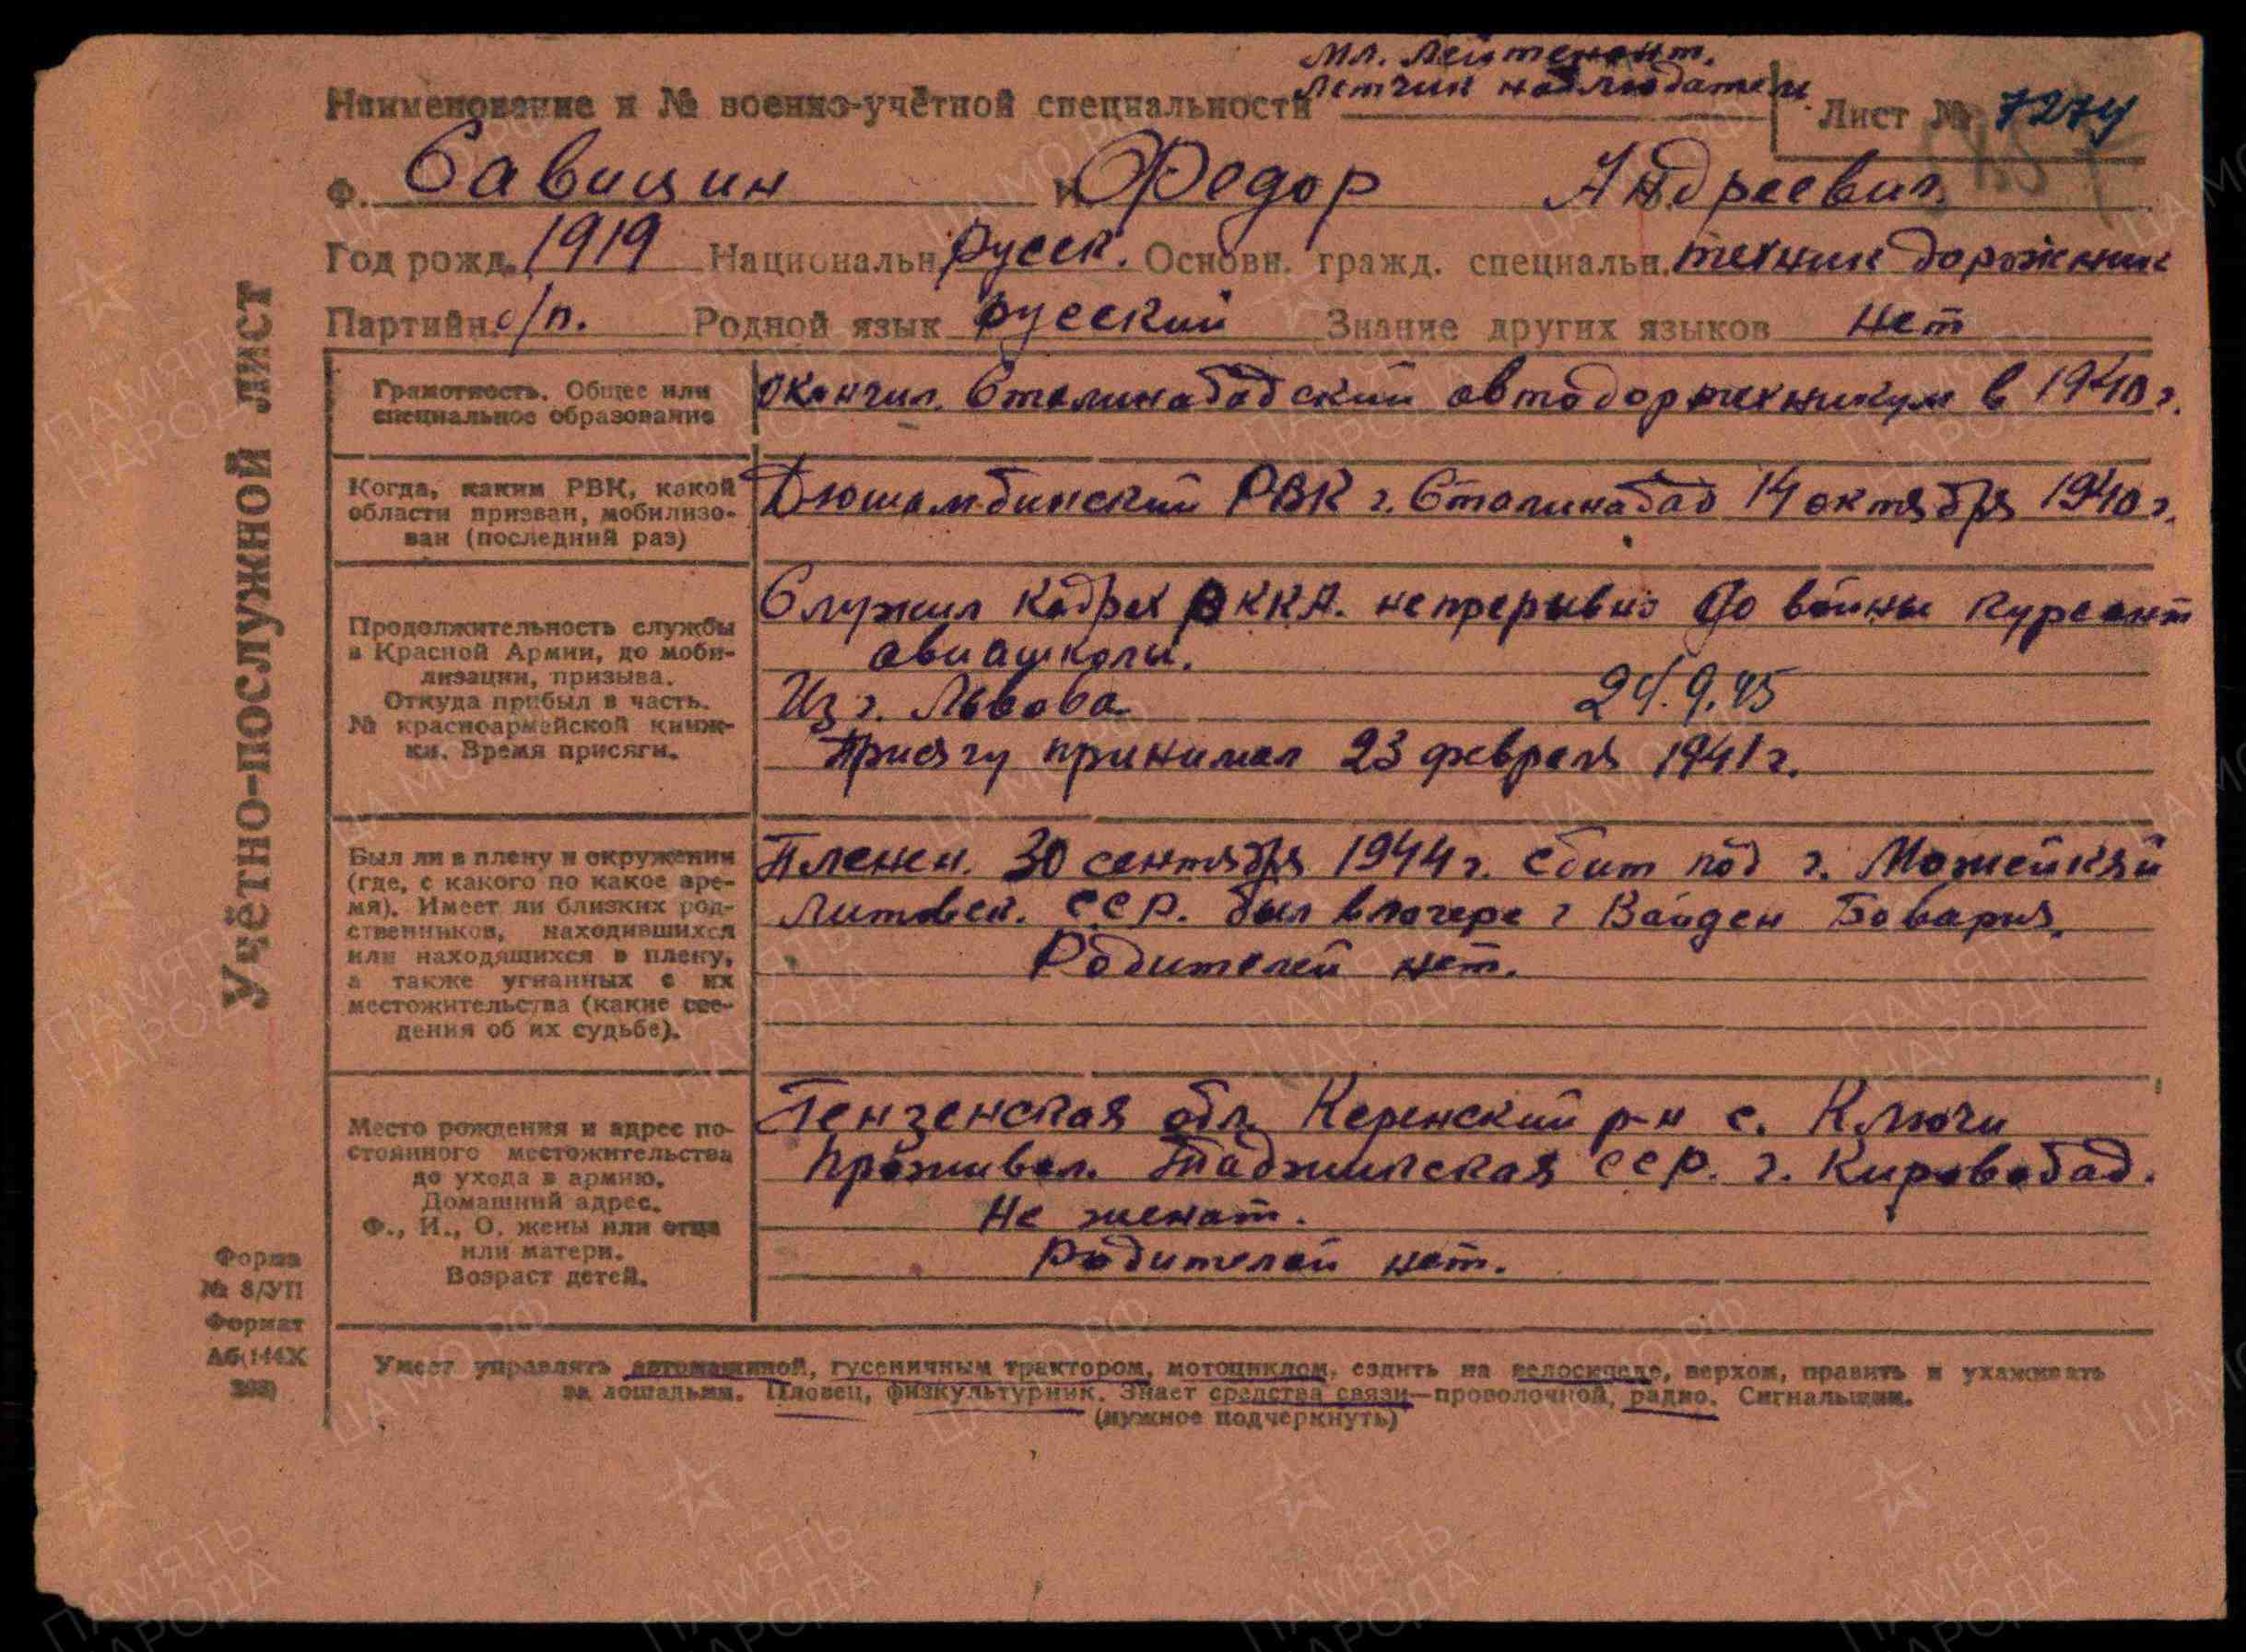 Мл. лейтенант.
летчик наблюдатель
Наименование и № военно-учётной специальности
Лист № 7274
Ф. Савицин И. Федор Андреевич
Год рожд. 1919 Национальн. русск. Основн. гражд. специальн. техник дорожник
Партийн. б/п. Родной язык русский Знание других языков нет
Учётно-послужной лист
Грамотность. Общее или
специальное образование
окончил. Сталинабадский автодортехникум в 1940 г.
Когда, каким РВК, какой
области призван, мобилизо-
ван (последний раз)
Дюшамбинский РВК г. Сталинабад 14 октября 1940 г.
Продолжительность службы
в Красной Армии, до моби-
лизации, призыва.
Откуда прибыл в часть.
№ красноармейской книж-
ки. Время присяги.
Служил кадрах РККА. непрерывно до войны курсант
авиашколы.
Из г. Львова 24.9.45
Присягу принимал 23 февраля 1941 г.
Был ли в плену и окружении
(где, с какого по какое вре-
мя). Имеет ли близких род-
ственников, находившихся
или находящихся в плену,
а также угнанных с их
местожительства (какие све-
дения об их судьбе).
Пленен. 30 сентября 1944 г. сбит под г. Можейкяй
Литовск. ССР. был в лагере г Вайден Бавария.
Родителей нет.
Место рождения и адрес по-
стоянного местожительства
до ухода в армию.
Домашний адрес.
Ф., И., О. жены или отца
или матери.
Возраст детей.
Пензенская обл. Керенский р-н с. Ключи
Проживал. Таджикская ССР. г. Кировабад.
Не женат.
Родителей нет.
Форма
№ 8/УП
Формат
А6(144Х
203)
Умеет управлять автомашиной, гусеничным трактором, мотоциклом, ездить на велосипеде, верхом, править и ухаживать
за лошадьми. Пловец, физкультурник. Знает средства связи—проволочной, радио. Сигнальщик.
(нужное подчеркнуть)
ПАМЯТЬ НАРОДА
ЦА МО РФ